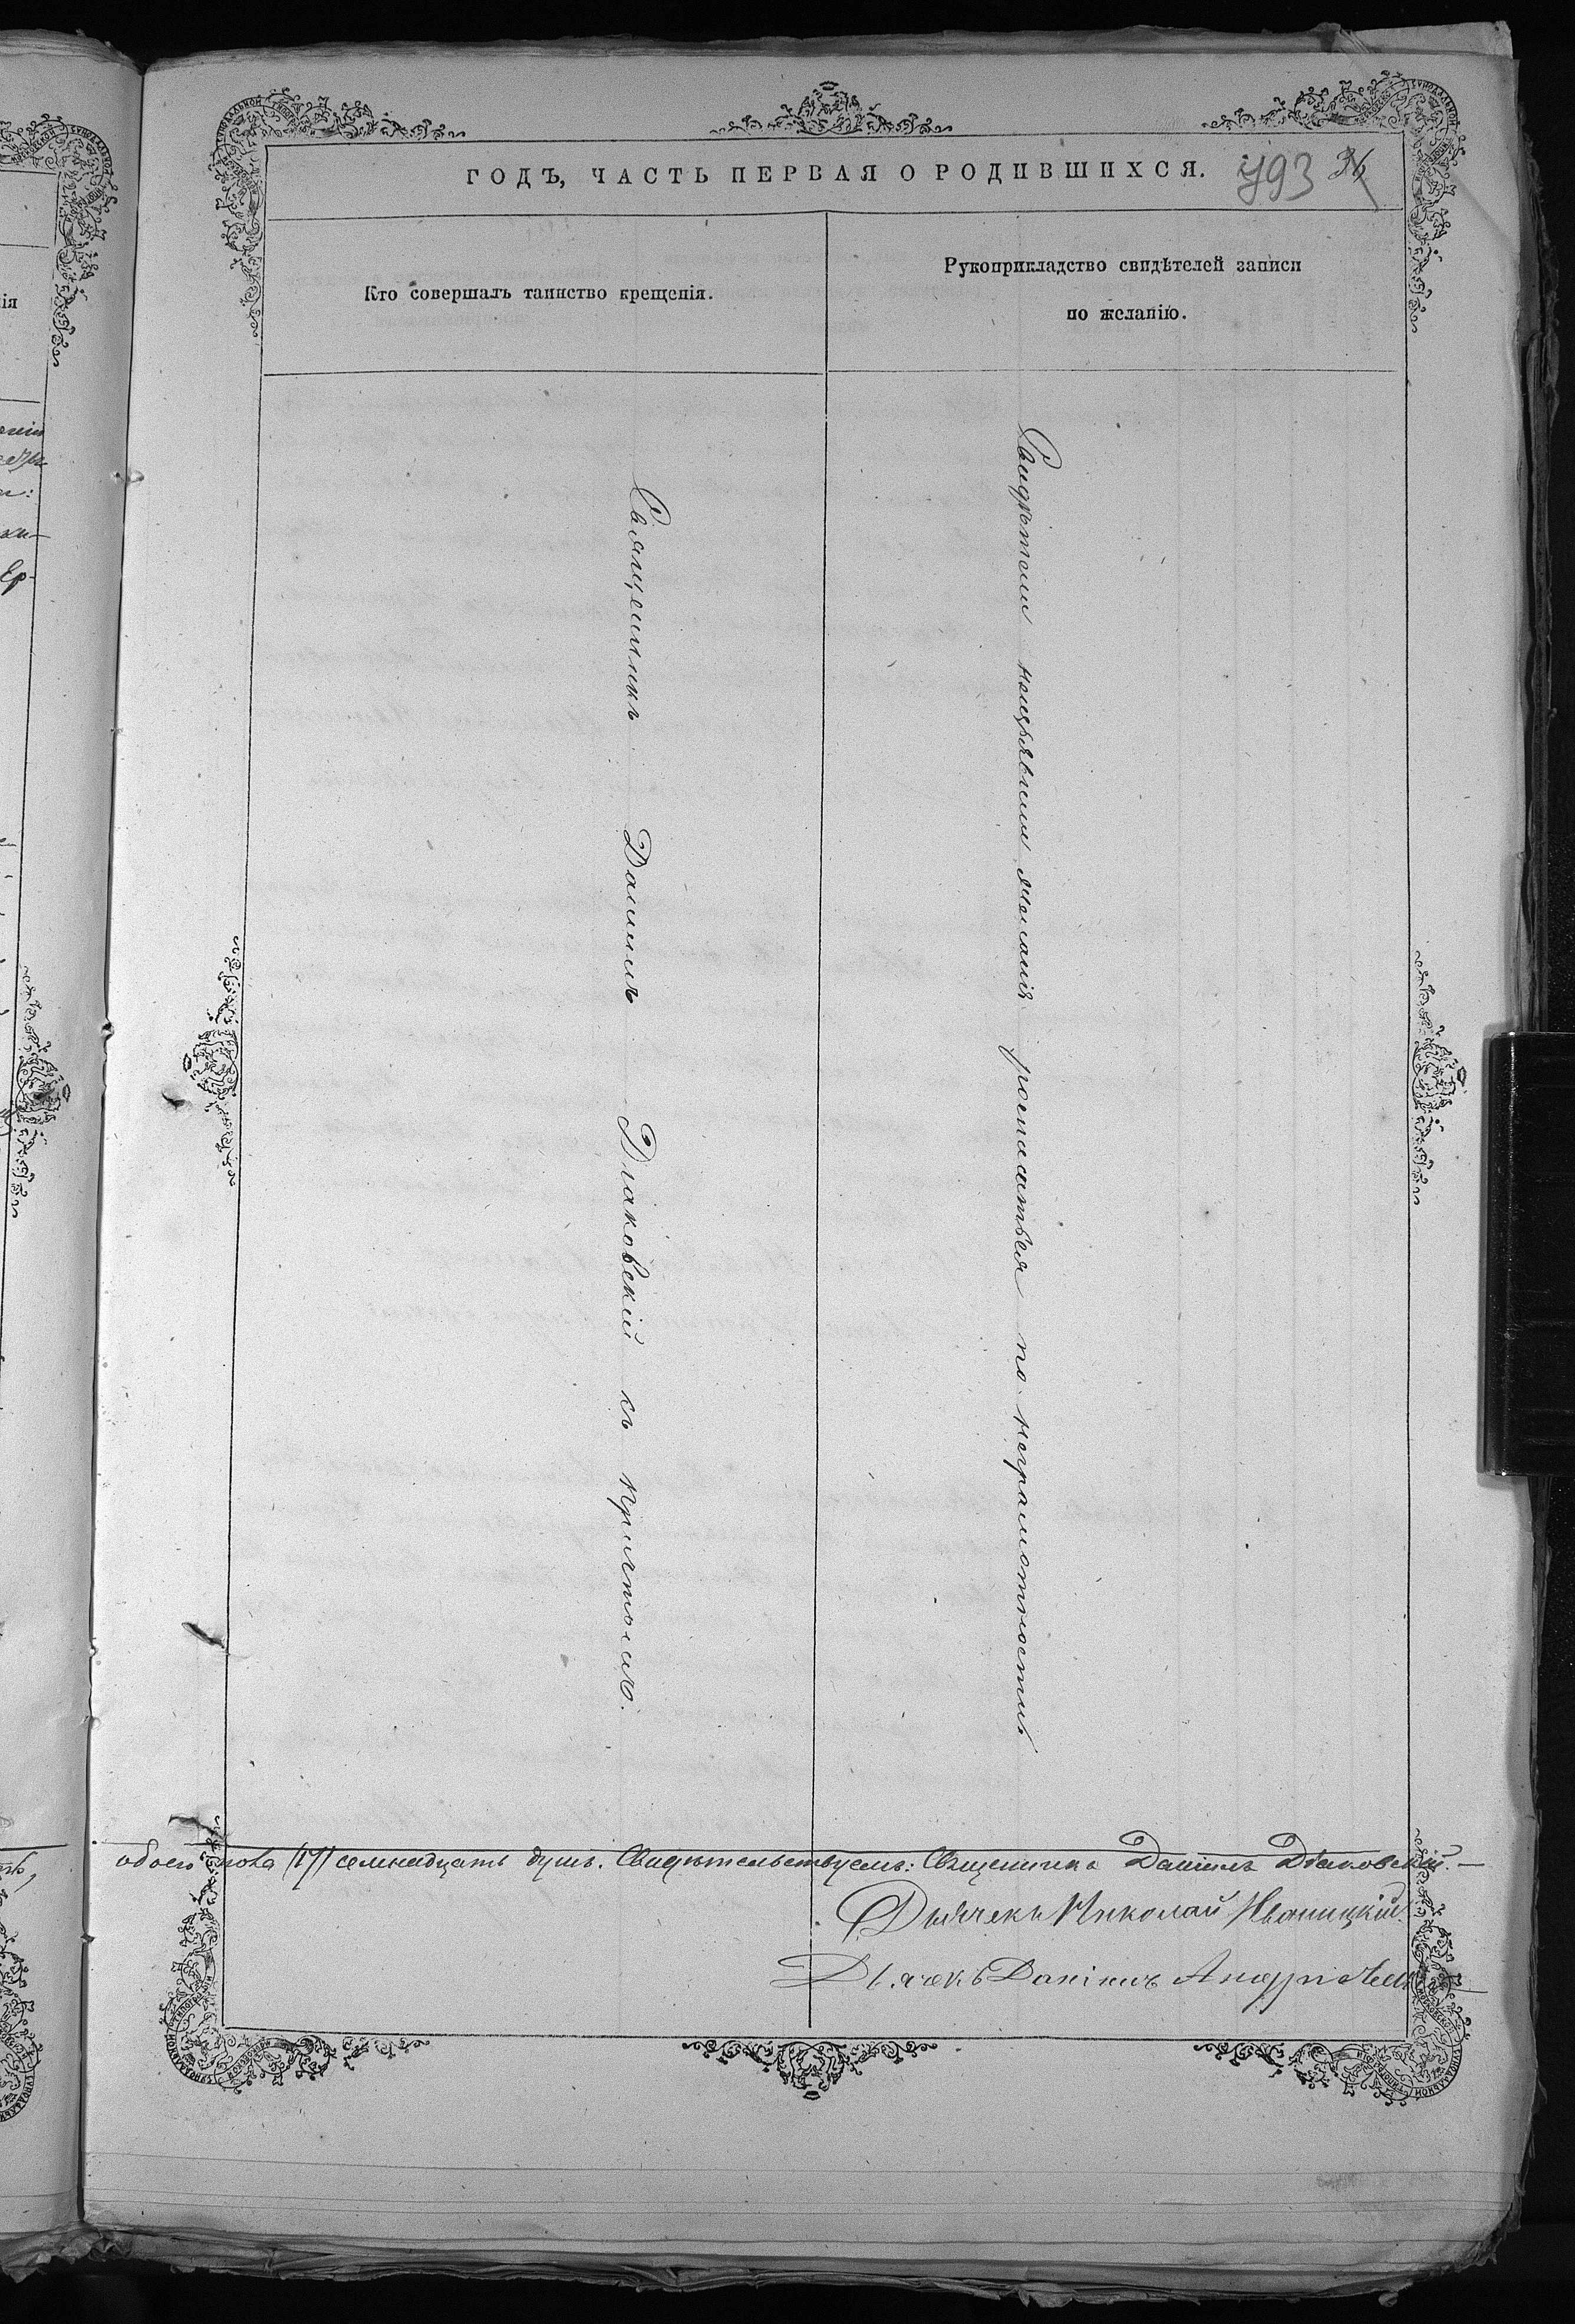 ГОДЪ, ЧАСТЬ ПЕРВАЯ О РОДИВШИХСЯ.
493
Кто совершалъ таинство крещенія.
Рукоприкладство свидѣтелей записи
по желанію.
Священникъ Даніилъ Діаковскій съ причтомъ.
Свидѣтели неизъявили желанія росписаться по неграмотности
обоего пола (17) семнадцать душъ. Свидѣтельствуемъ: Священникъ Даніилъ Діаковскій. —
Дьячекъ Николай Иваницкій
Дьячекъ Даніилъ